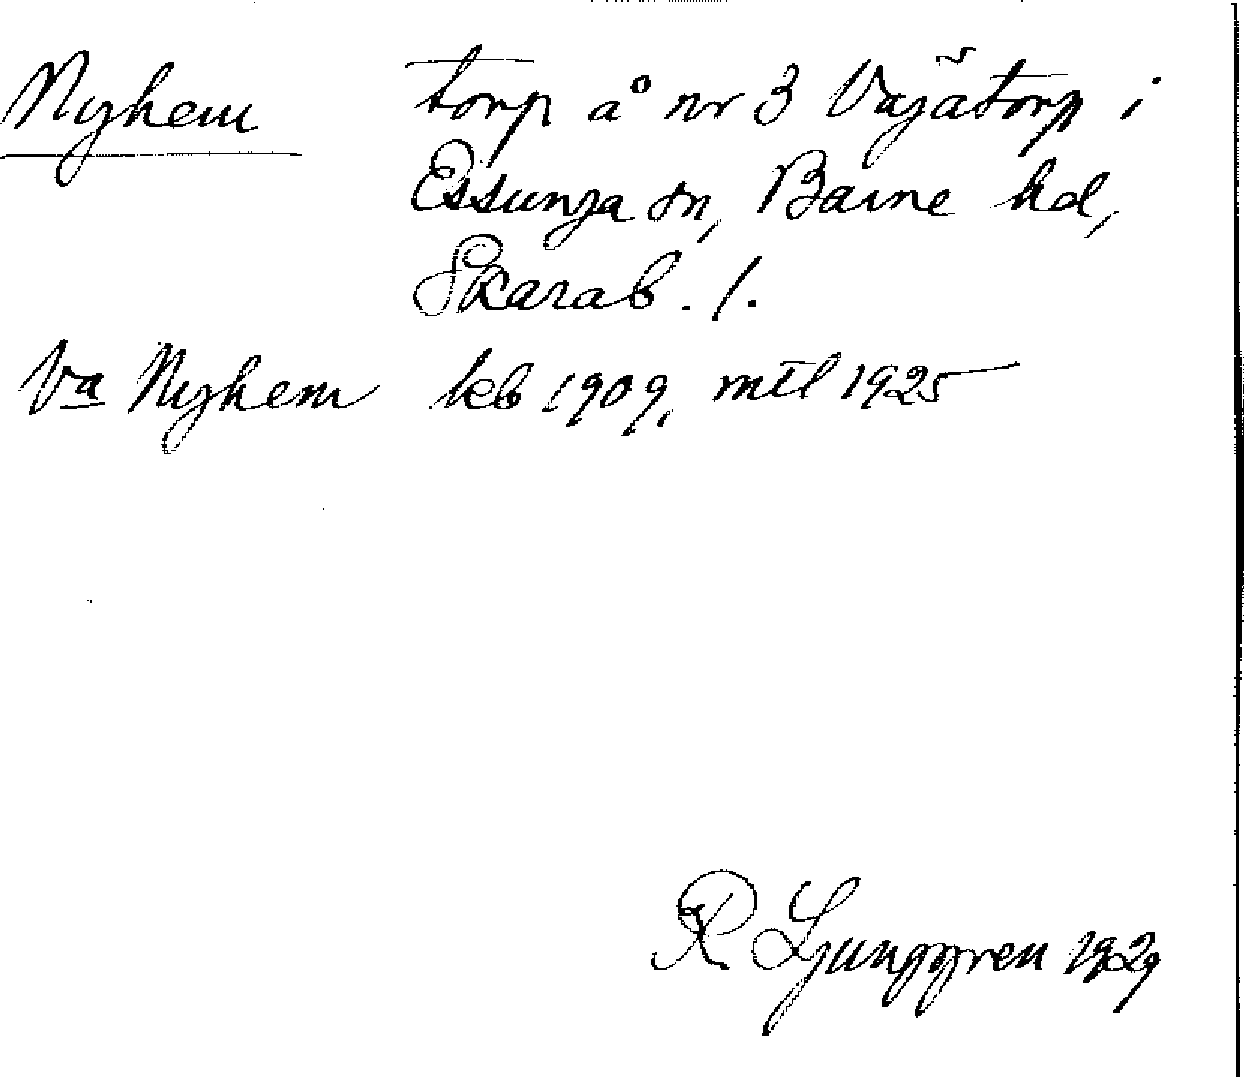 Nyhem torp å nr 3 Vajätorp i
Essunga sn, Barne hd,
Skarab. l.
Va Nyhem kb 1909, mtl 1925
R Ljunggren 1929